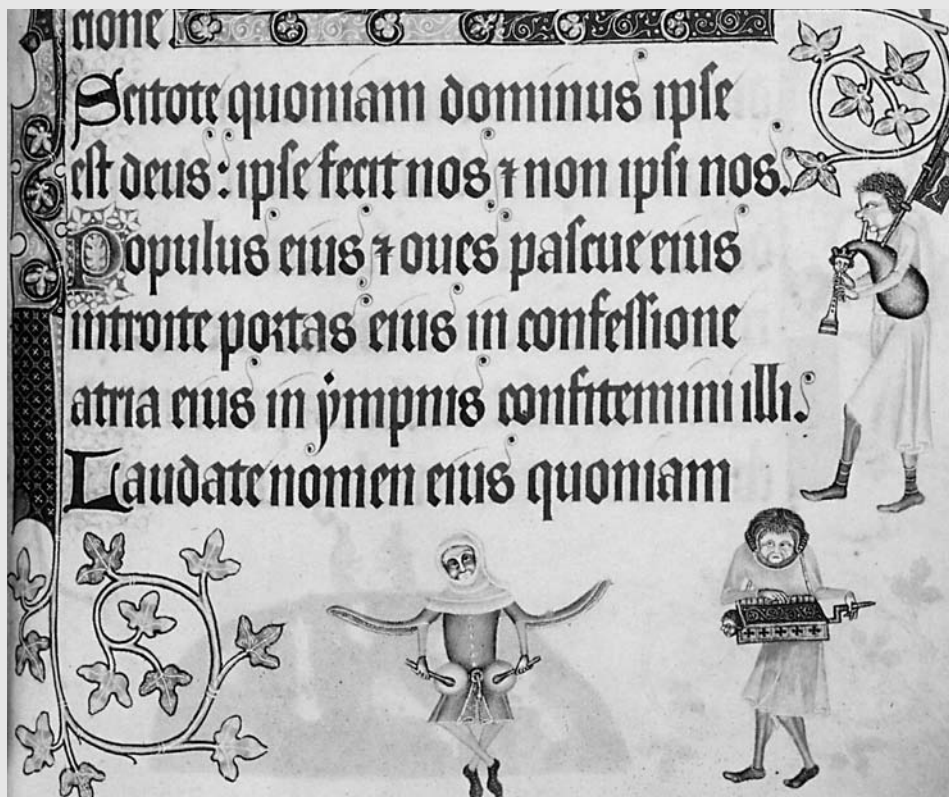 cione
Scitote quoniam dominus ipse
est deus : ipse fecit nos ⁊ non ipsi nos.
Populus eius ⁊ oues pascue eius
introite portas eius in confessione
atria eius in ympnis confitemini illi.
Laudate nomen eius quoniam